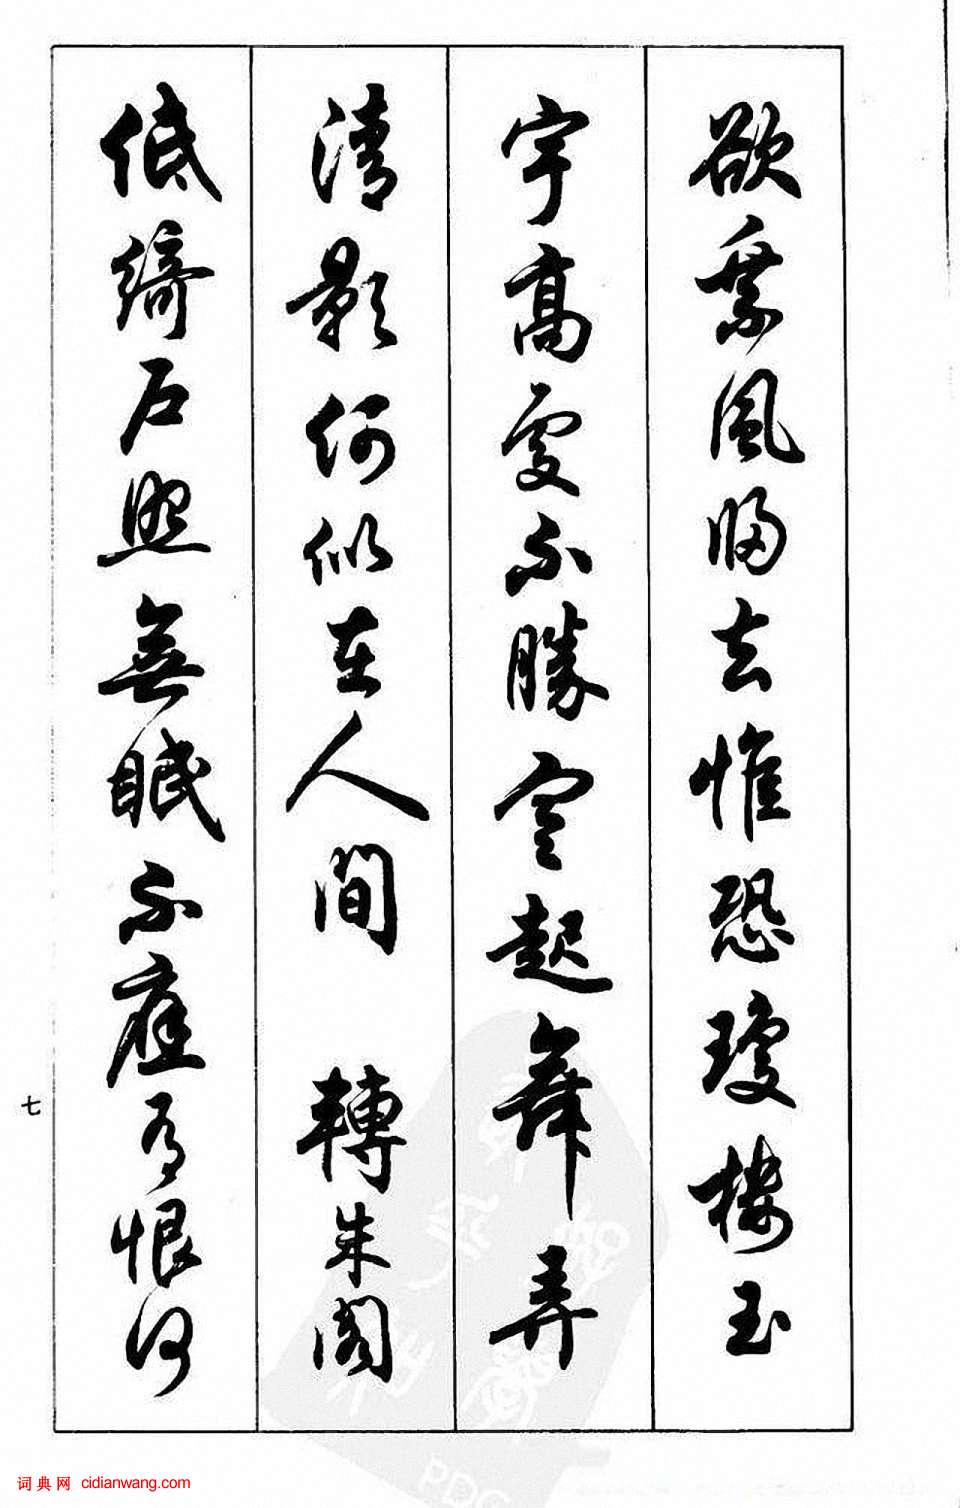 欲乘風歸去惟恐瓊樓玉
宇高處不勝寒起舞弄
清影何似在人間 轉朱閣
低綺戶照無眠不應有恨何
七
词典网 cidianwang.com